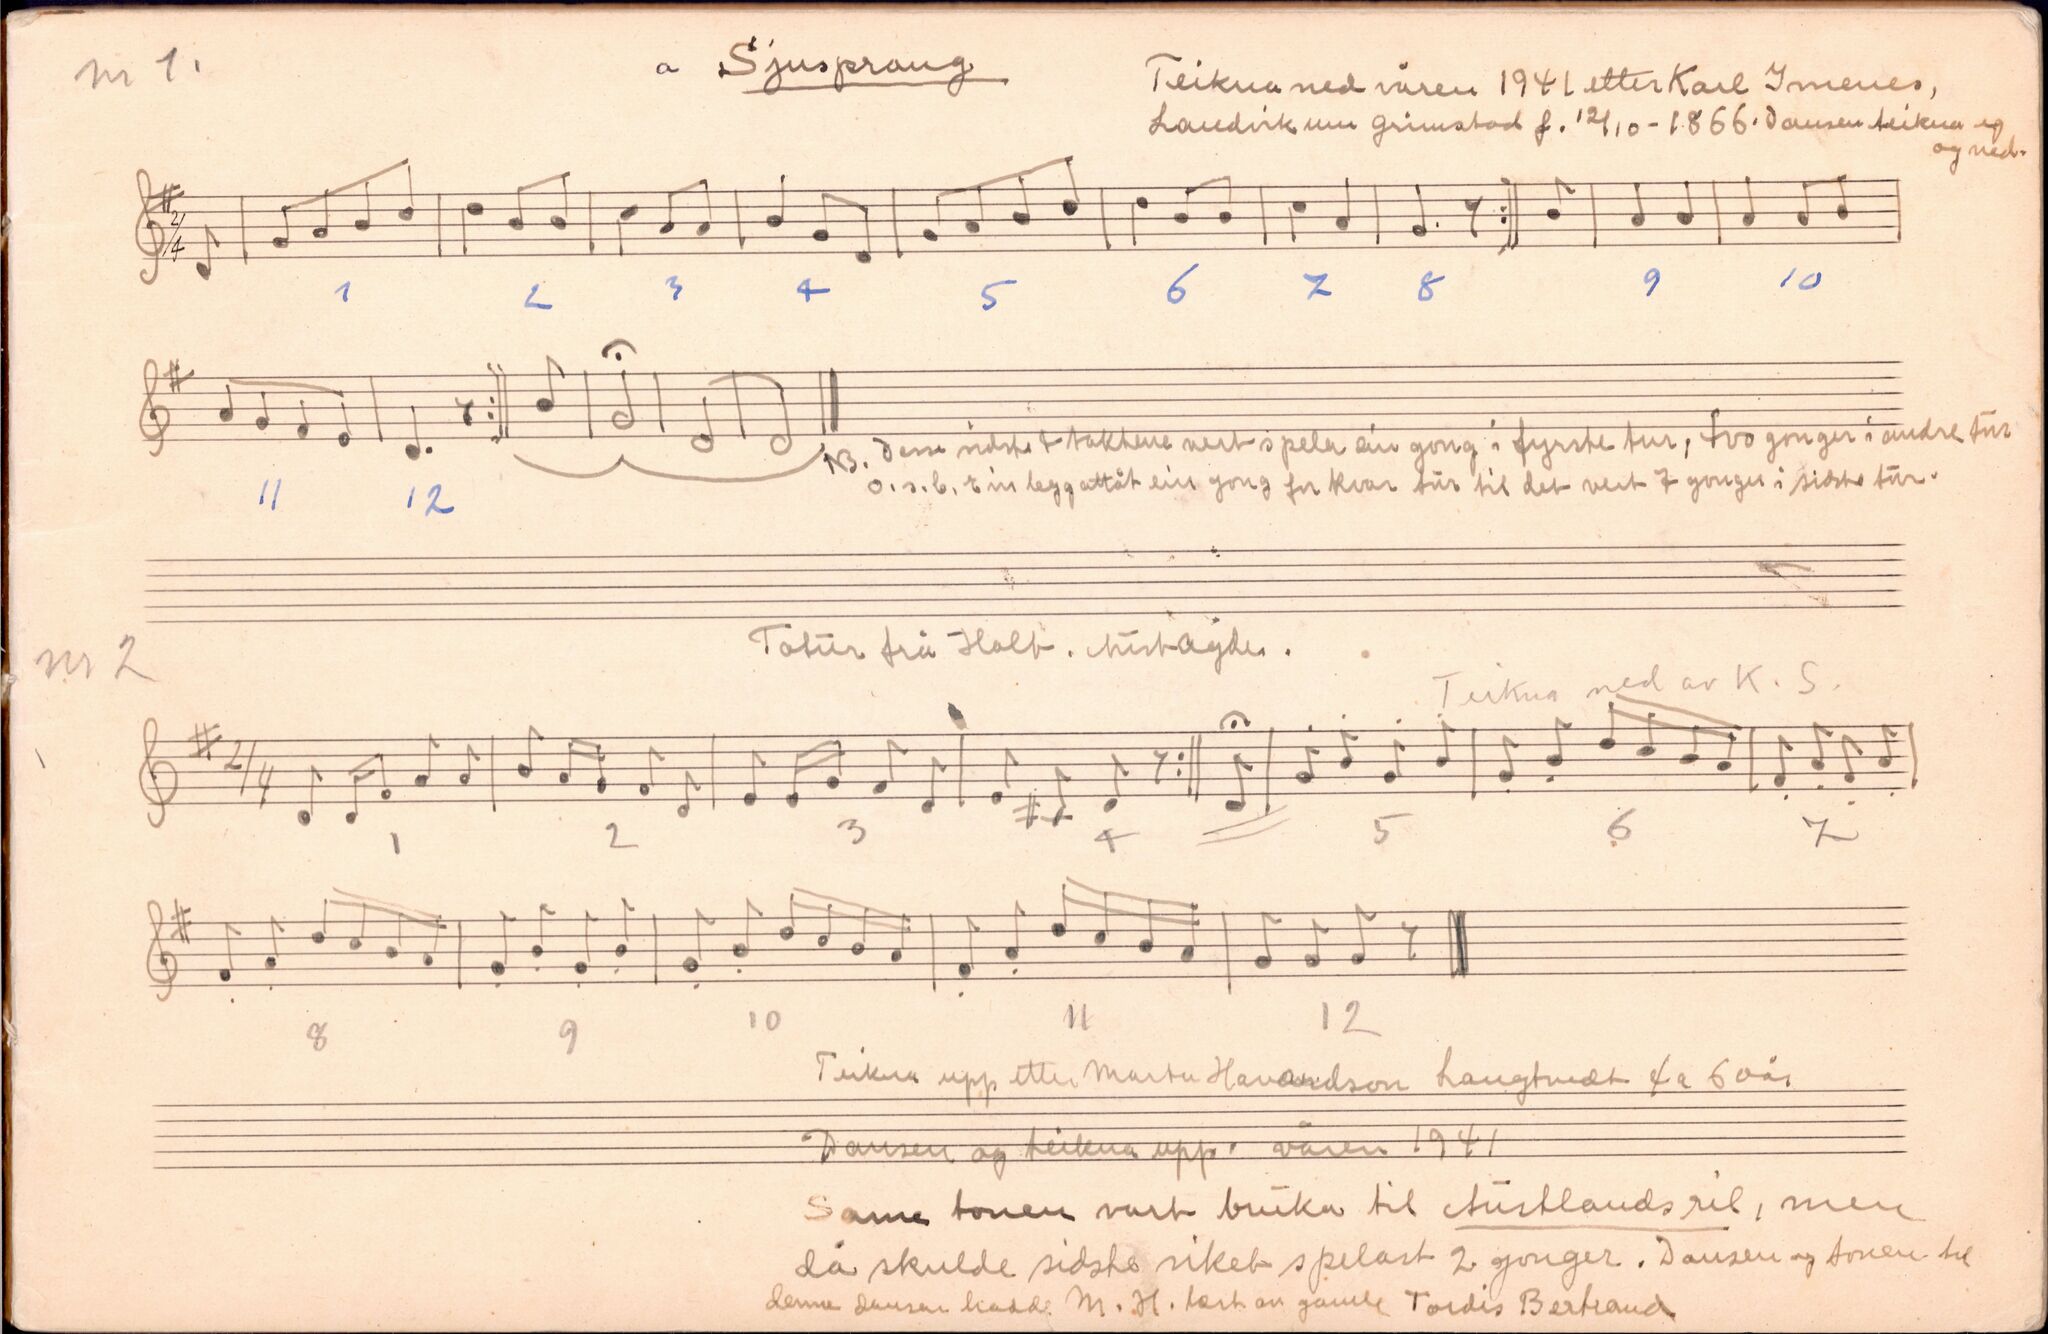 nr 1.
a Sjusprang
Teikna ned våren 1941 etter Karl Imenes,
Landvik um Grimstad f. 12/10 - 1866. Dansen teikna eg
og ned.
2/4
1 2 3 4 5 6 7 8 9 10
NB. Desse sidste taktene vert spela ein gong i fyrste tur, tvo gonger i andre tur
o.s.b. ein legg attåt ein gong for kvar tur til det vert 7 gonger i sidste tur.
11 12
nr 2
Totur frå Holt. Aust Agder.
Teikna ned av K. S.
2/4
1 2 3 4 5 6 7
8 9 10 11 12
Teikna upp etter Marta Havardson Langtvedt ca 60 år
Dansen og teikna upp. våren 1941
Same tonen vart bruka til Austlandsril, men
då skulde sidste riket spelast 2 gonger. Dansen og tonen til
denne dansen hadde M. H. lært av gamle Tordis Bertrand